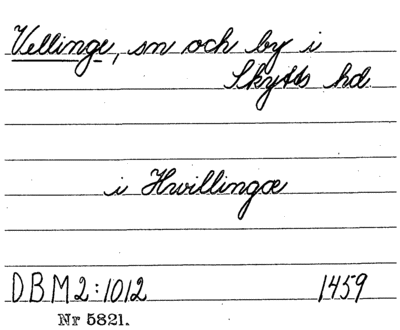 Vellinge, sn och by i
Skytts hd.
i Hwillingæ
DBM2:1012 1459
Nr 5821.